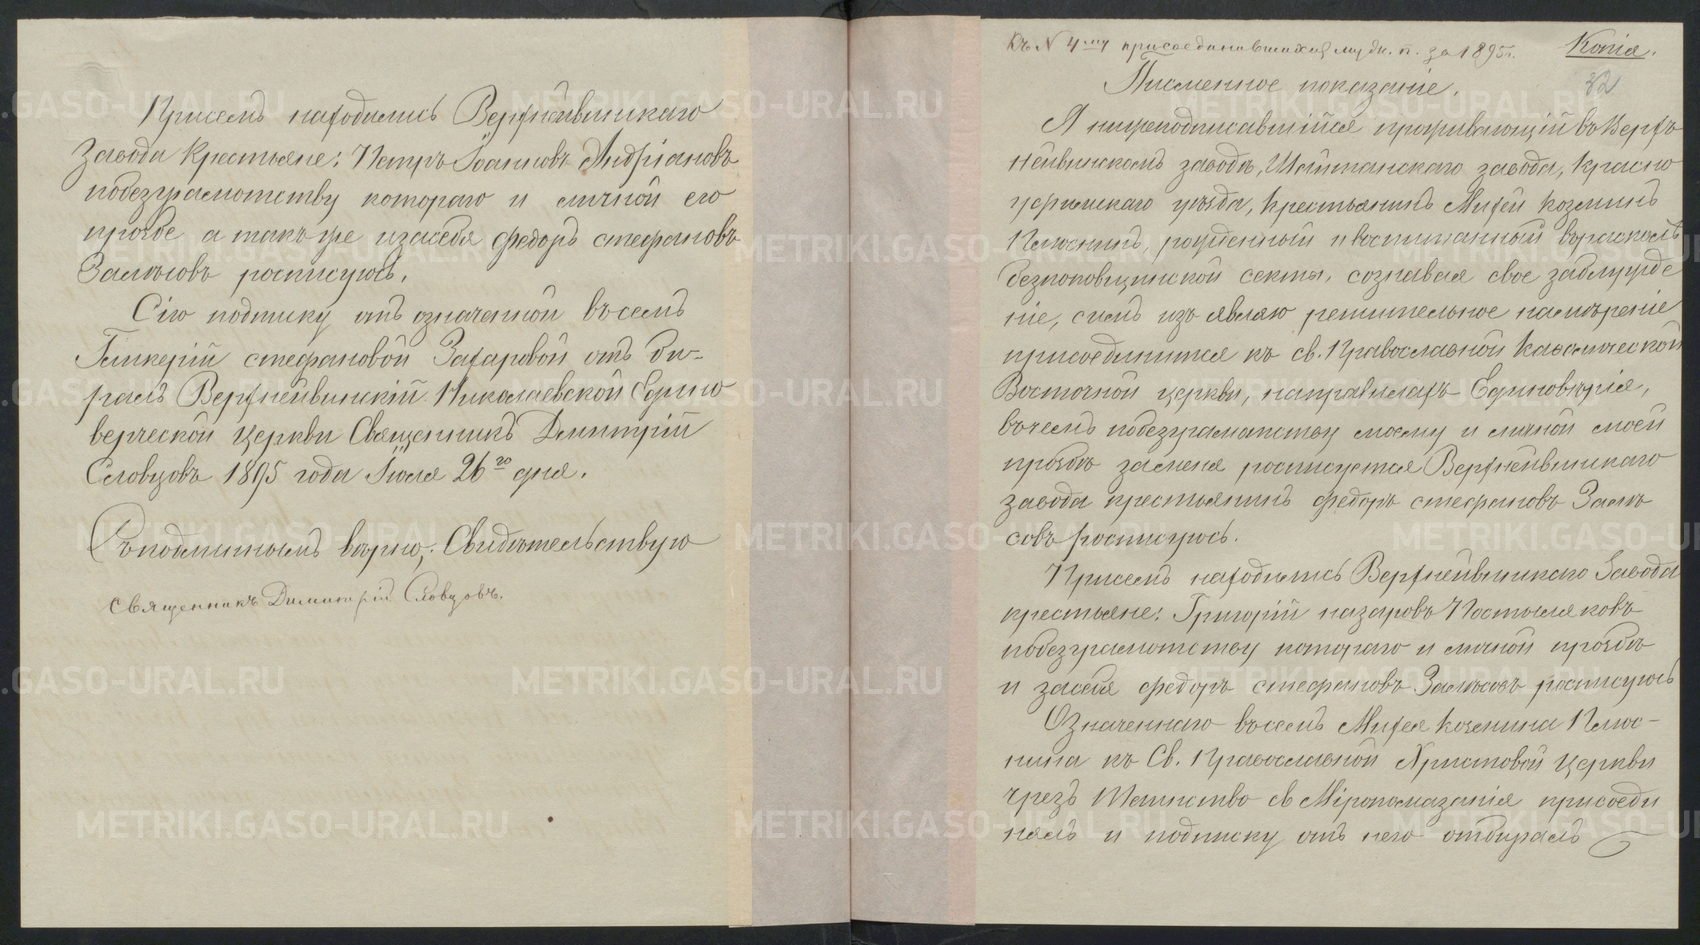 При семъ находились Верхнейвинскаго
завода крестьяне: Петръ Іоанновъ Андріановъ
побезграмотству котораго и личной его
прозбе а такъ же изасебя федоръ стефановъ
Замѣсовъ росписуюсь.
Сію подписку отъ означенной въ семъ
Гликеріи стефановой Захаровой отъ би-
ралъ Верхнейвинскій Николаевской Едино
верческой церкви Священникъ Димитрій
Словцовъ 1895 года Іюля 26го дня.
Съ подлиннымъ вѣрно, Свидѣтельствую
священникъ Димитрій Словцовъ.
Къ N 4му присоединившихся муж. п. за 1895 г. Копія.
82
Писменное показаніе.
Я нижеподписавшійся проживающій въ Верхъ
нейвинскомъ заводѣ, Шайтанскаго завода, Красно
уфимскаго уѣзда, крестьянинъ Михей Козминъ
Плюснинъ, рожденный ивоспитанный врасколѣ
безпоповщинской секты, сознавая свое заблужде
ніе, симъ изъ являю решительное намѣреніе
присоединится къ св. Православной Каѳолической
Восточной церкви, направилахъ Единовѣрія,
вчемъ побезграмотству моему и личной моей
прозбѣ заменя росписуется Верхнейвинскаго
завода крестьянинъ федоръ стефановъ Замѣ
совъ росписуюсь.
При семъ находились Верхнейвинскаго Завода
крестьяне: Григорій назаровъ Постыляковъ
побезграмотству котораго и личной прозбѣ
и засебя федоръ стефановъ Замѣсовъ росписуюсь
Означеннаго въсемъ Михея Козмина Плюс-
нина къ Св. Православной Христовой церкви
чрезъ Таинство св Мѵропомазанія присоеди
нялъ и подписку отъ него отбиралъ